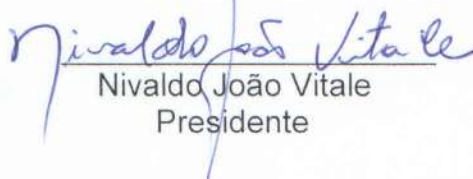 Nivaldo João Vitale
Nivaldo João Vitale
Presidente